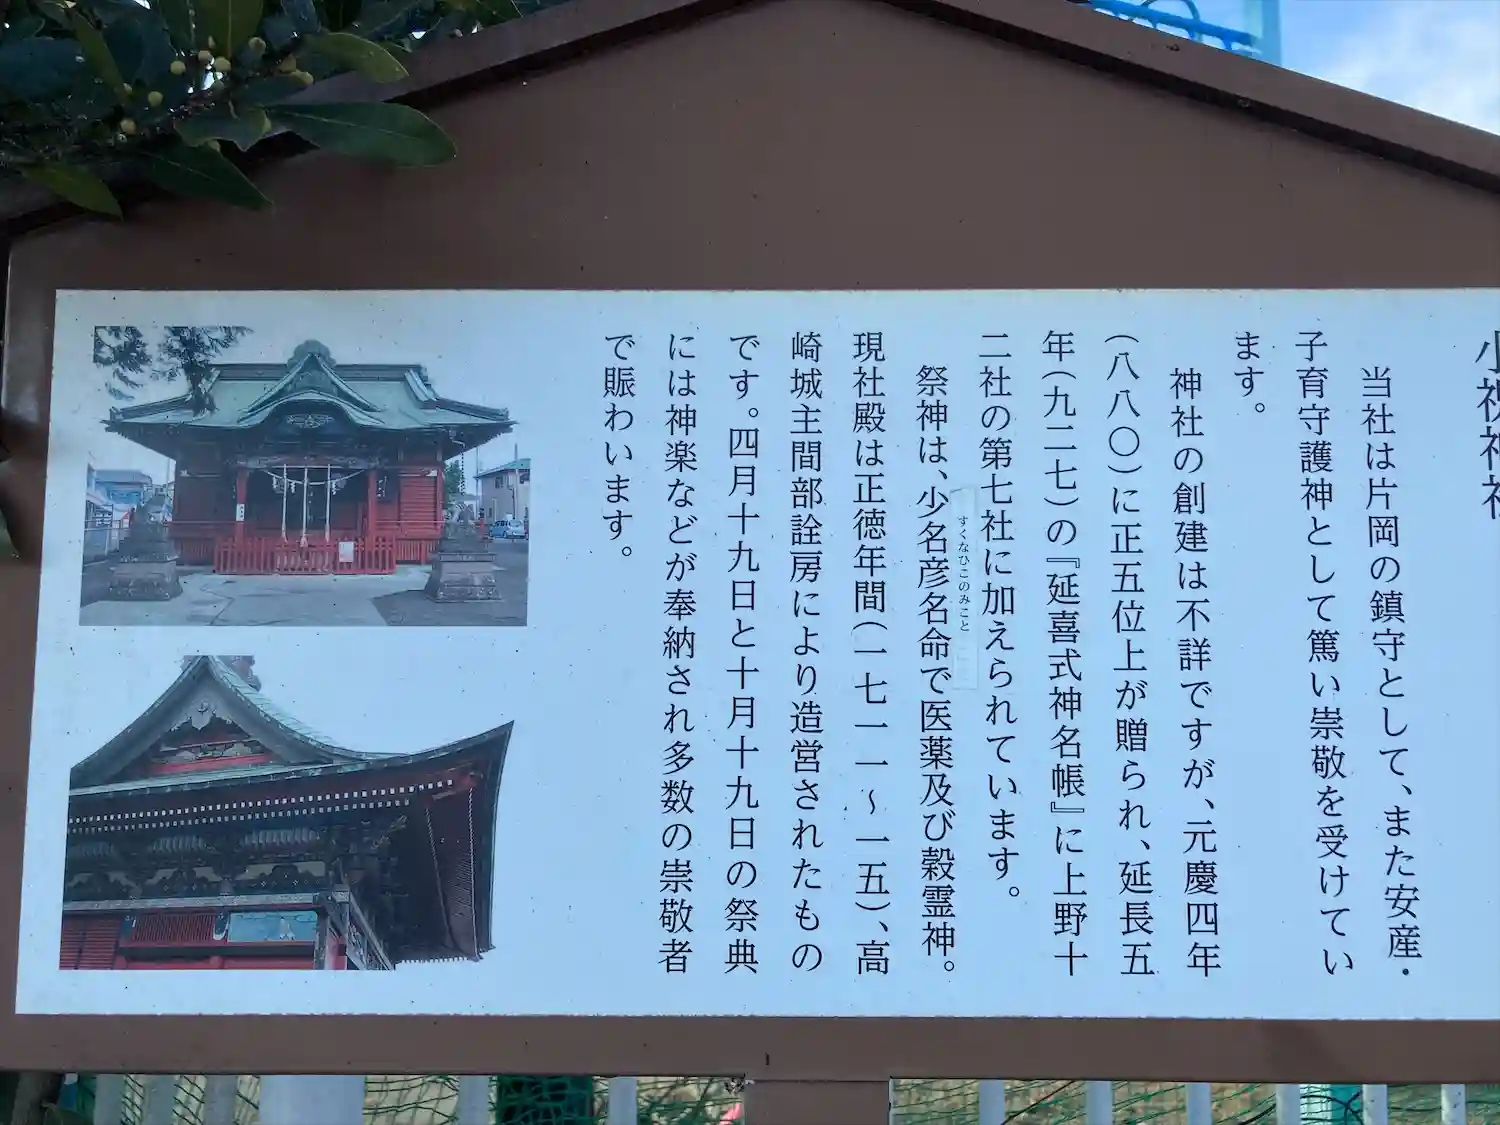 小祝神社
当社は片岡の鎮守として、また安産・
子育守護神として篤い崇敬を受けてい
ます。
神社の創建は不詳ですが、元慶四年
(八八〇)に正五位上が贈られ、延長五
年(九二七)の『延喜式神名帳』に上野十
二社の第七社に加えられています。
祭神は、少名彦名命で医薬及び穀霊神。
すくなひこのみこと
現社殿は正徳年間(一七一一～一五)、高
崎城主間部詮房により造営されたもの
です。四月十九日と十月十九日の祭典
には神楽などが奉納され多数の崇敬者
で賑わいます。